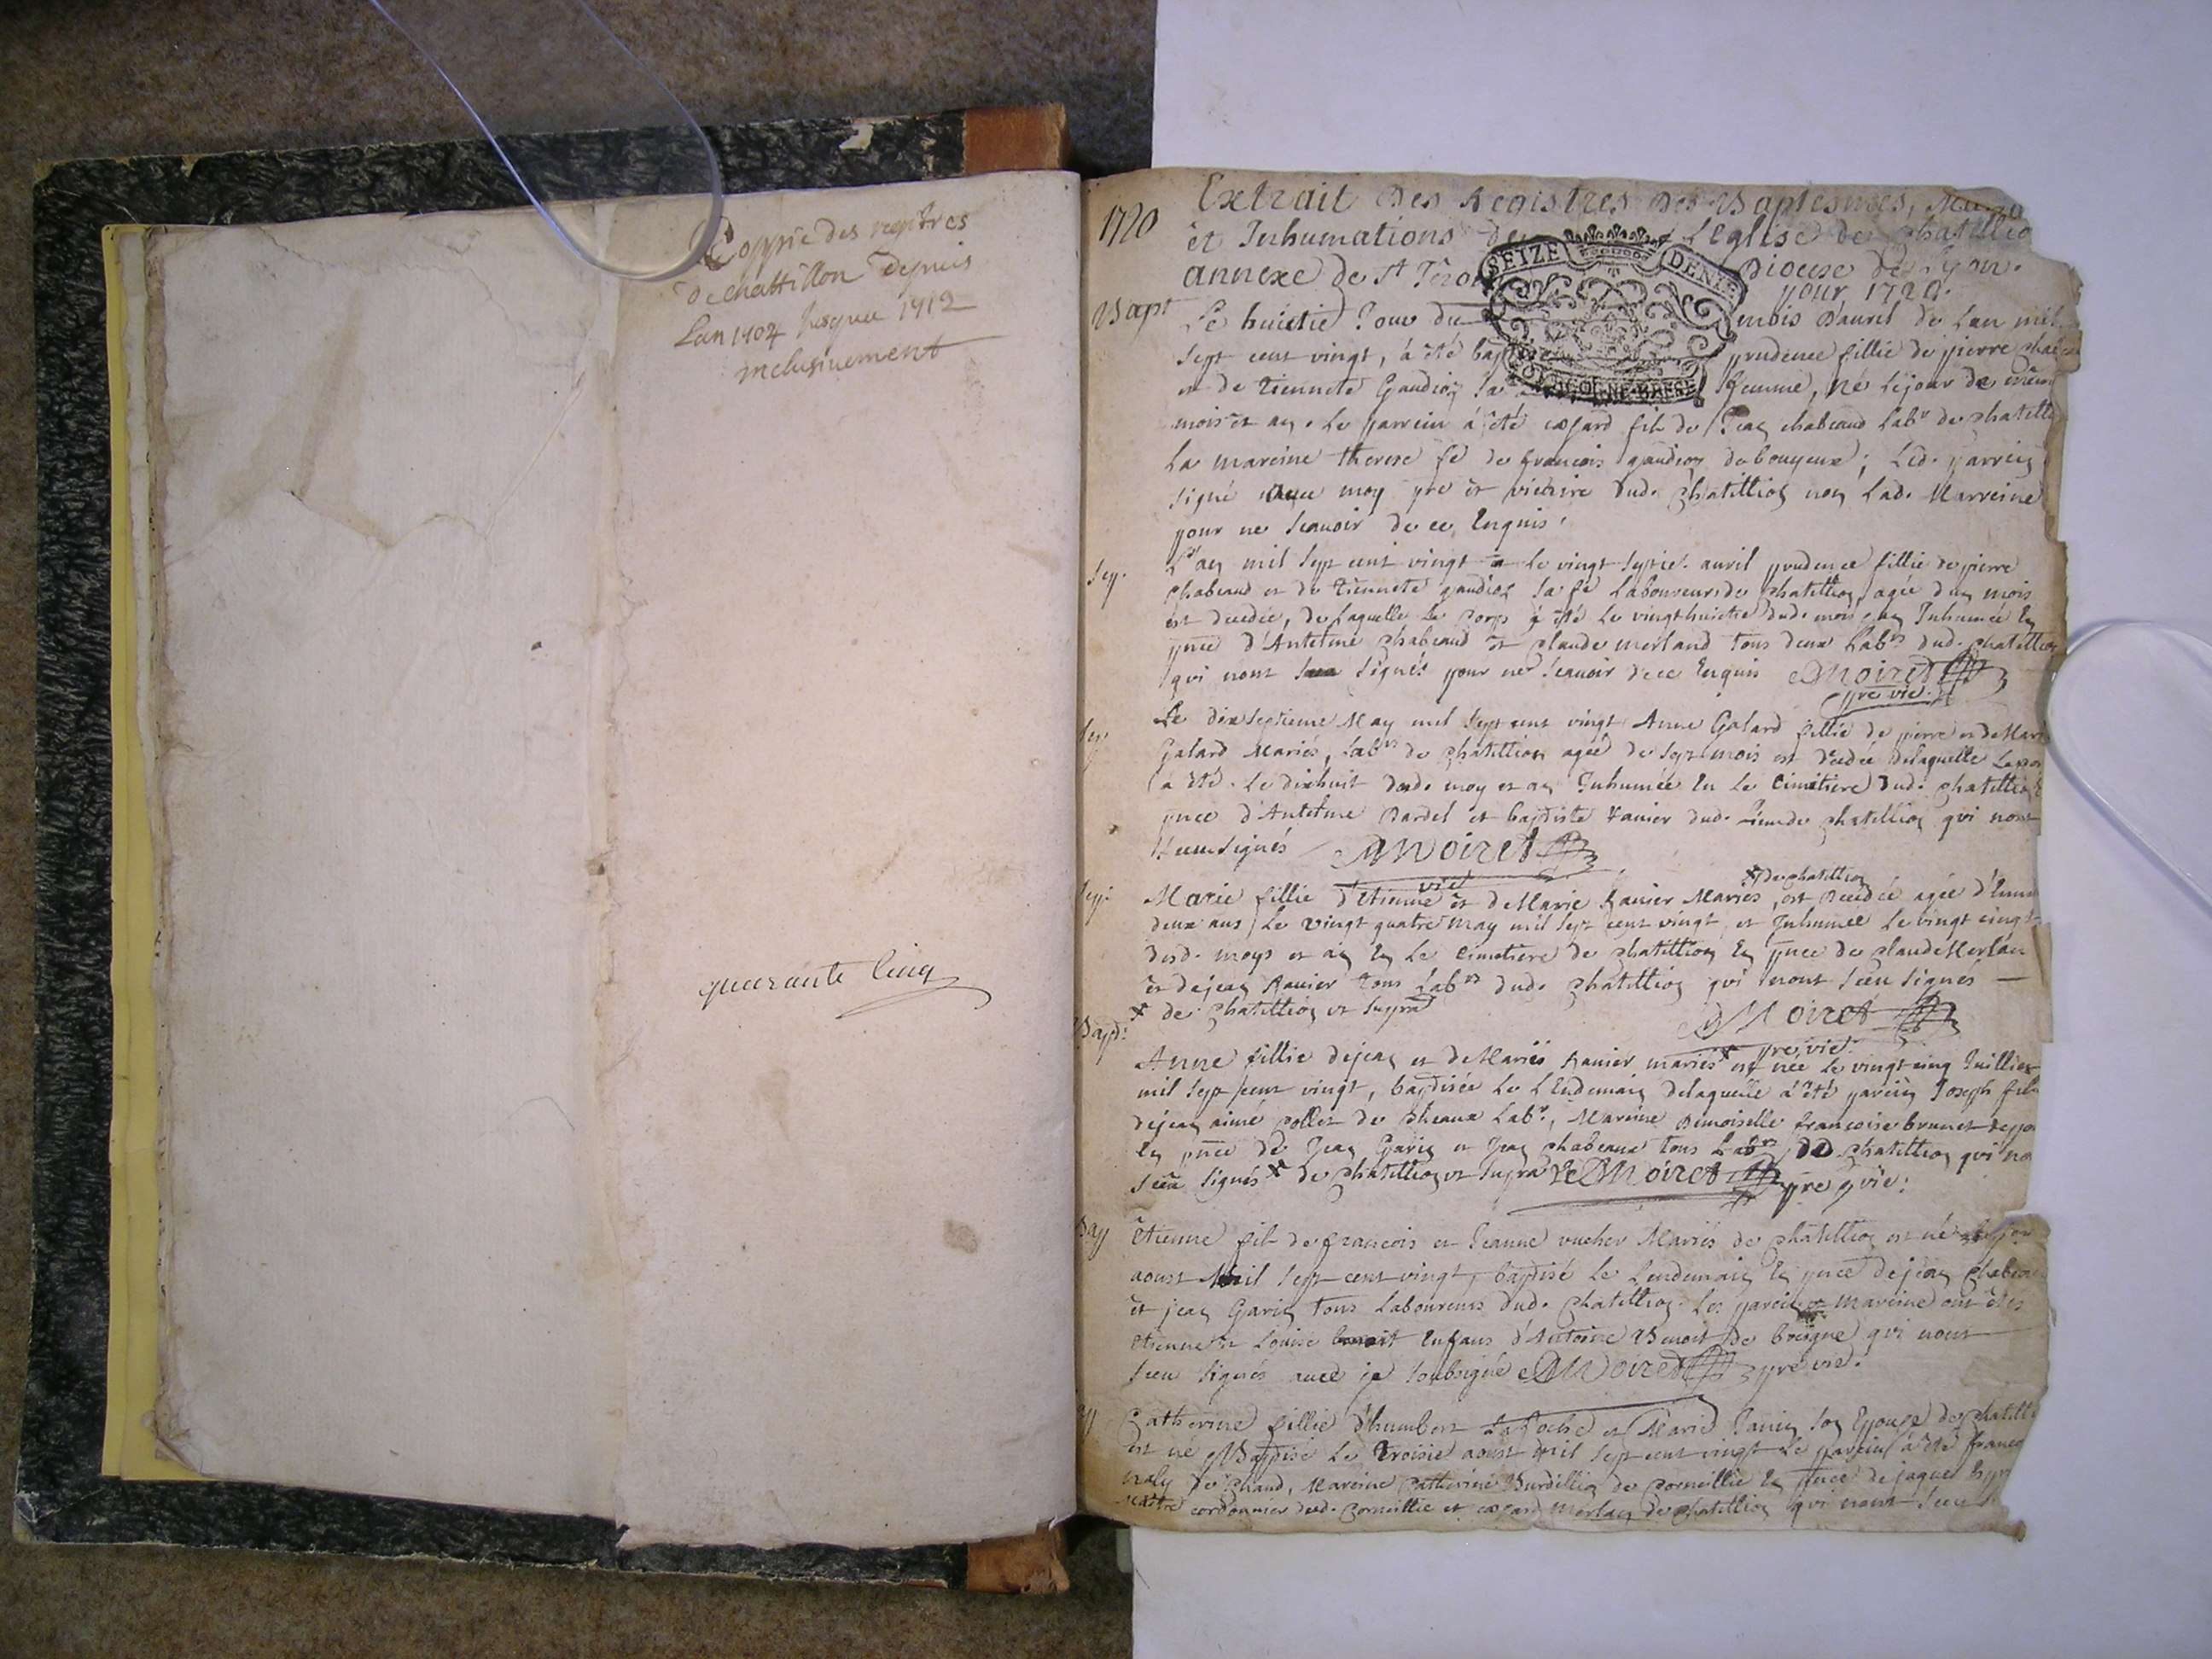 Coppie des regitres
de chattillon depuis
Lan 1704 jusques 1712
inclusivement
quarante cinq
1720
Extrait Des Registres Des Baptesmes,
et Inhumations de L'eglise de chatillio
annexe de St Diocese de Lyon.
pour 1720.
SEIZE DENI
BOURGOGNE BRESSE
Bapt
Le huictie Jour du mois D'auril de Lan mil
sept cent vingt, à été prudence fillie de pierre
et de Tiennete Gaudion sa femme, né Le jour de
mois et an. Le parrein à été caspard fils de Jean chabeaud Labr de chatillio
La mareine therese fe de francois gaudion de bouyeux; Led. parrein
signé auec moy pre et vicaire dud. chatillion non Lad. Marreine
pour ne scauoir de ce Enquis.
Sep.
L'an mil sept cent vingt Le vingt septie. auril prudence fillie de pierre
chabeaud et de tiennete gaudion sa fe Laboureurs de chatillion agée d'un mois
est decedée, de laquelle Le corps à été Le vingthuictie dud. mois et an Inhumée En
pnce d'Antelme chabeaud et claude merland tous deux Labrs dud. chatillion
qui nont signés pour ne scauoir de ce Enquis Moiret
pre vic.
Sep.
Le dix septieme May mil sept cent vingt Anne Galard fillie de pierre et de Marie
Galard Mariés, Labrs de chatillion ageé de sept mois est decedée delaquelle Le
a été Le dixhuit dud. moy et an Inhumée En Le Cimetiere dud. chatillion
pnce d'Antelme Bardel et baptiste Ranier dud. chatillion qui nont
sceu signés Moiret
vic
Sep.
de chatillion
Marie fillie d'Etienne et de Marie Ranier Mariés, est decedée agée d'Enuiron
deux ans, Le vingt quatre May mil sept cent vingt, et Inhumée Le vingt cinq
dud. moys et an En Le cimetiere de chatillion En pnce de claude Merlan
et de jean Ranier tous Labrs dud. chatillion qui nont sceu signés
x de chatillion ut supra Moiret
pre vic.
Bapt:
Anne fillie de jean et de Mariés Ranier mariés x est née Le vingt cinq Juillier
mil sept cent vingt, baptisée Le L'Endemain delaquelle à été parrein Joseph fils
de jean aimé collet de cheaux Labr, Mareine Demoiselle francoise brunet
En pnce de Jean Garin et Jean chabeaux tous Labrs de chatillion qui no
sceu signés x de chatillion ut supra Moiret pre vic:
Bap
Etienne fils de francois et Jeanne vucher Mariés de chatillion est né
aoust Mil sept cent vingt, baptisé Le Lendemain En pnce de jean chabeau
et jean Garin tous Laboureurs dud. chatillion. Les parein et mareine ont étés
Etienne et Louise benoit Enfans d'Antoine Benoit de qui nont
sceu signés auec je soubsigné Moiret pre vic.
Catherine fillie d'humbert Laroche et Marie Janin son Epouse de chatilli
est né et Baptisé Le troisie aoust mil sept cent vingt Le parein à été franc
de Mareine Catherine Burdillion de Corneillie En pnce de jaques
Maitre cordonnier dud. Corneillie et caspard merlan de chatillion qui nont sceu